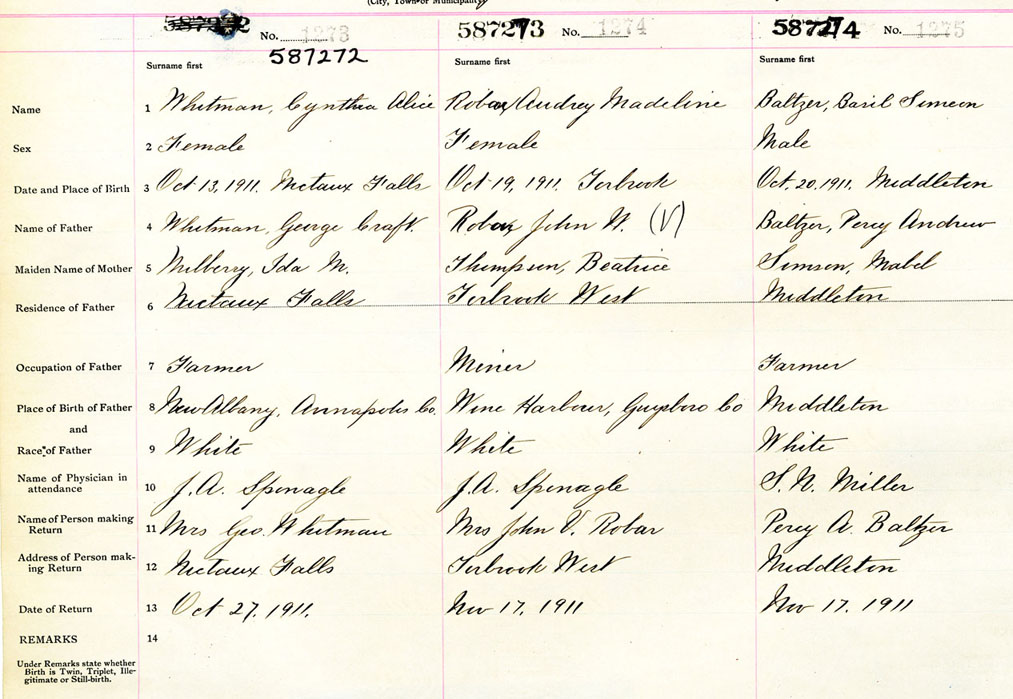 (City, Town or Municipality)
587272 No. 1273 587273 No. 1274 587274 No. 1275
587272
Surname first Surname first Surname first
Name 1 Whitman, Cynthia Alice Robar, Audrey Madeline Baltzer, Basil Simeon
Sex 2 Female Female Male
Date and Place of Birth 3 Oct 13, 1911. Nictaux Falls Oct 19, 1911 Torbrook Oct. 20. 1911. Middleton
Name of Father 4 Whitman, George Craft. Robar John W. (V) Baltzer, Percy Andrew
Maiden Name of Mother 5 Milberry, Ida M. Thompson, Beatrice Simson, Mabel
Residence of Father 6 Nictaux Falls Torbrook West Middleton
Occupation of Father 7 Farmer Miner Farmer
Place of Birth of Father 8 New Albany, Annapolis Co. Wine Harbour, Guysboro Co Middleton
and
Race of Father 9 White White White
Name of Physician in
attendance 10 J.A. Sponagle J.A. Sponagle S. N. Miller
Name of Person making
Return 11 Mrs Geo. Whitman Mrs John V. Robar Percy A. Baltzer
Address of Person mak-
ing Return 12 Nictaux Falls Torbrook West Middleton
Date of Return 13 Oct 27, 1911. Nov 17, 1911 Nov 17. 1911
REMARKS 14
Under Remarks state whether
Birth is Twin, Triplet, Ille-
gitimate or Still-birth.